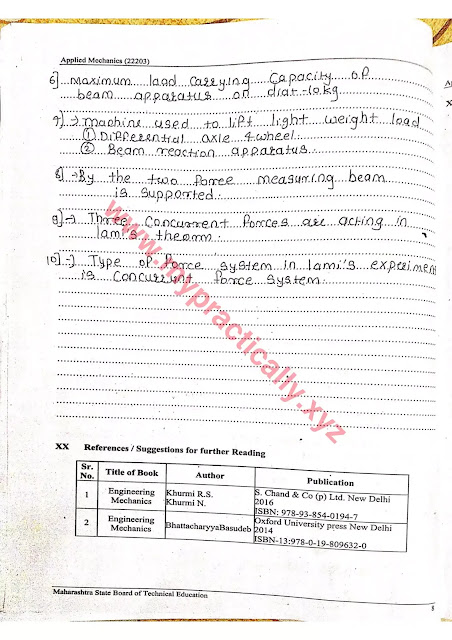 Applied Mechanics (22203)
6] maximum load carrying capacity of
beam apparatus on dial-10kg
7) → machine used to lift light weight load
① Differential axle & wheel.
② Beam reaction apparatus.
8] → By the two force measuring beam
is supported.
9] → Three Concurrent Forces are acting in
lami's theorm.
10] → Type of force system in lami's experiment
is concurrent force system.
www.mypractically.xyz
XX References / Suggestions for further Reading
Sr. No. Title of Book Author Publication
1 Engineering Mechanics Khurmi R.S. Khurmi N. S. Chand & Co (p) Ltd. New Delhi 2016 ISBN: 978-93-854-0194-7
2 Engineering Mechanics BhattacharyyaBasudeb Oxford University press New Delhi 2014 ISBN-13:978-0-19-809632-0
Maharashtra State Board of Technical Education
8